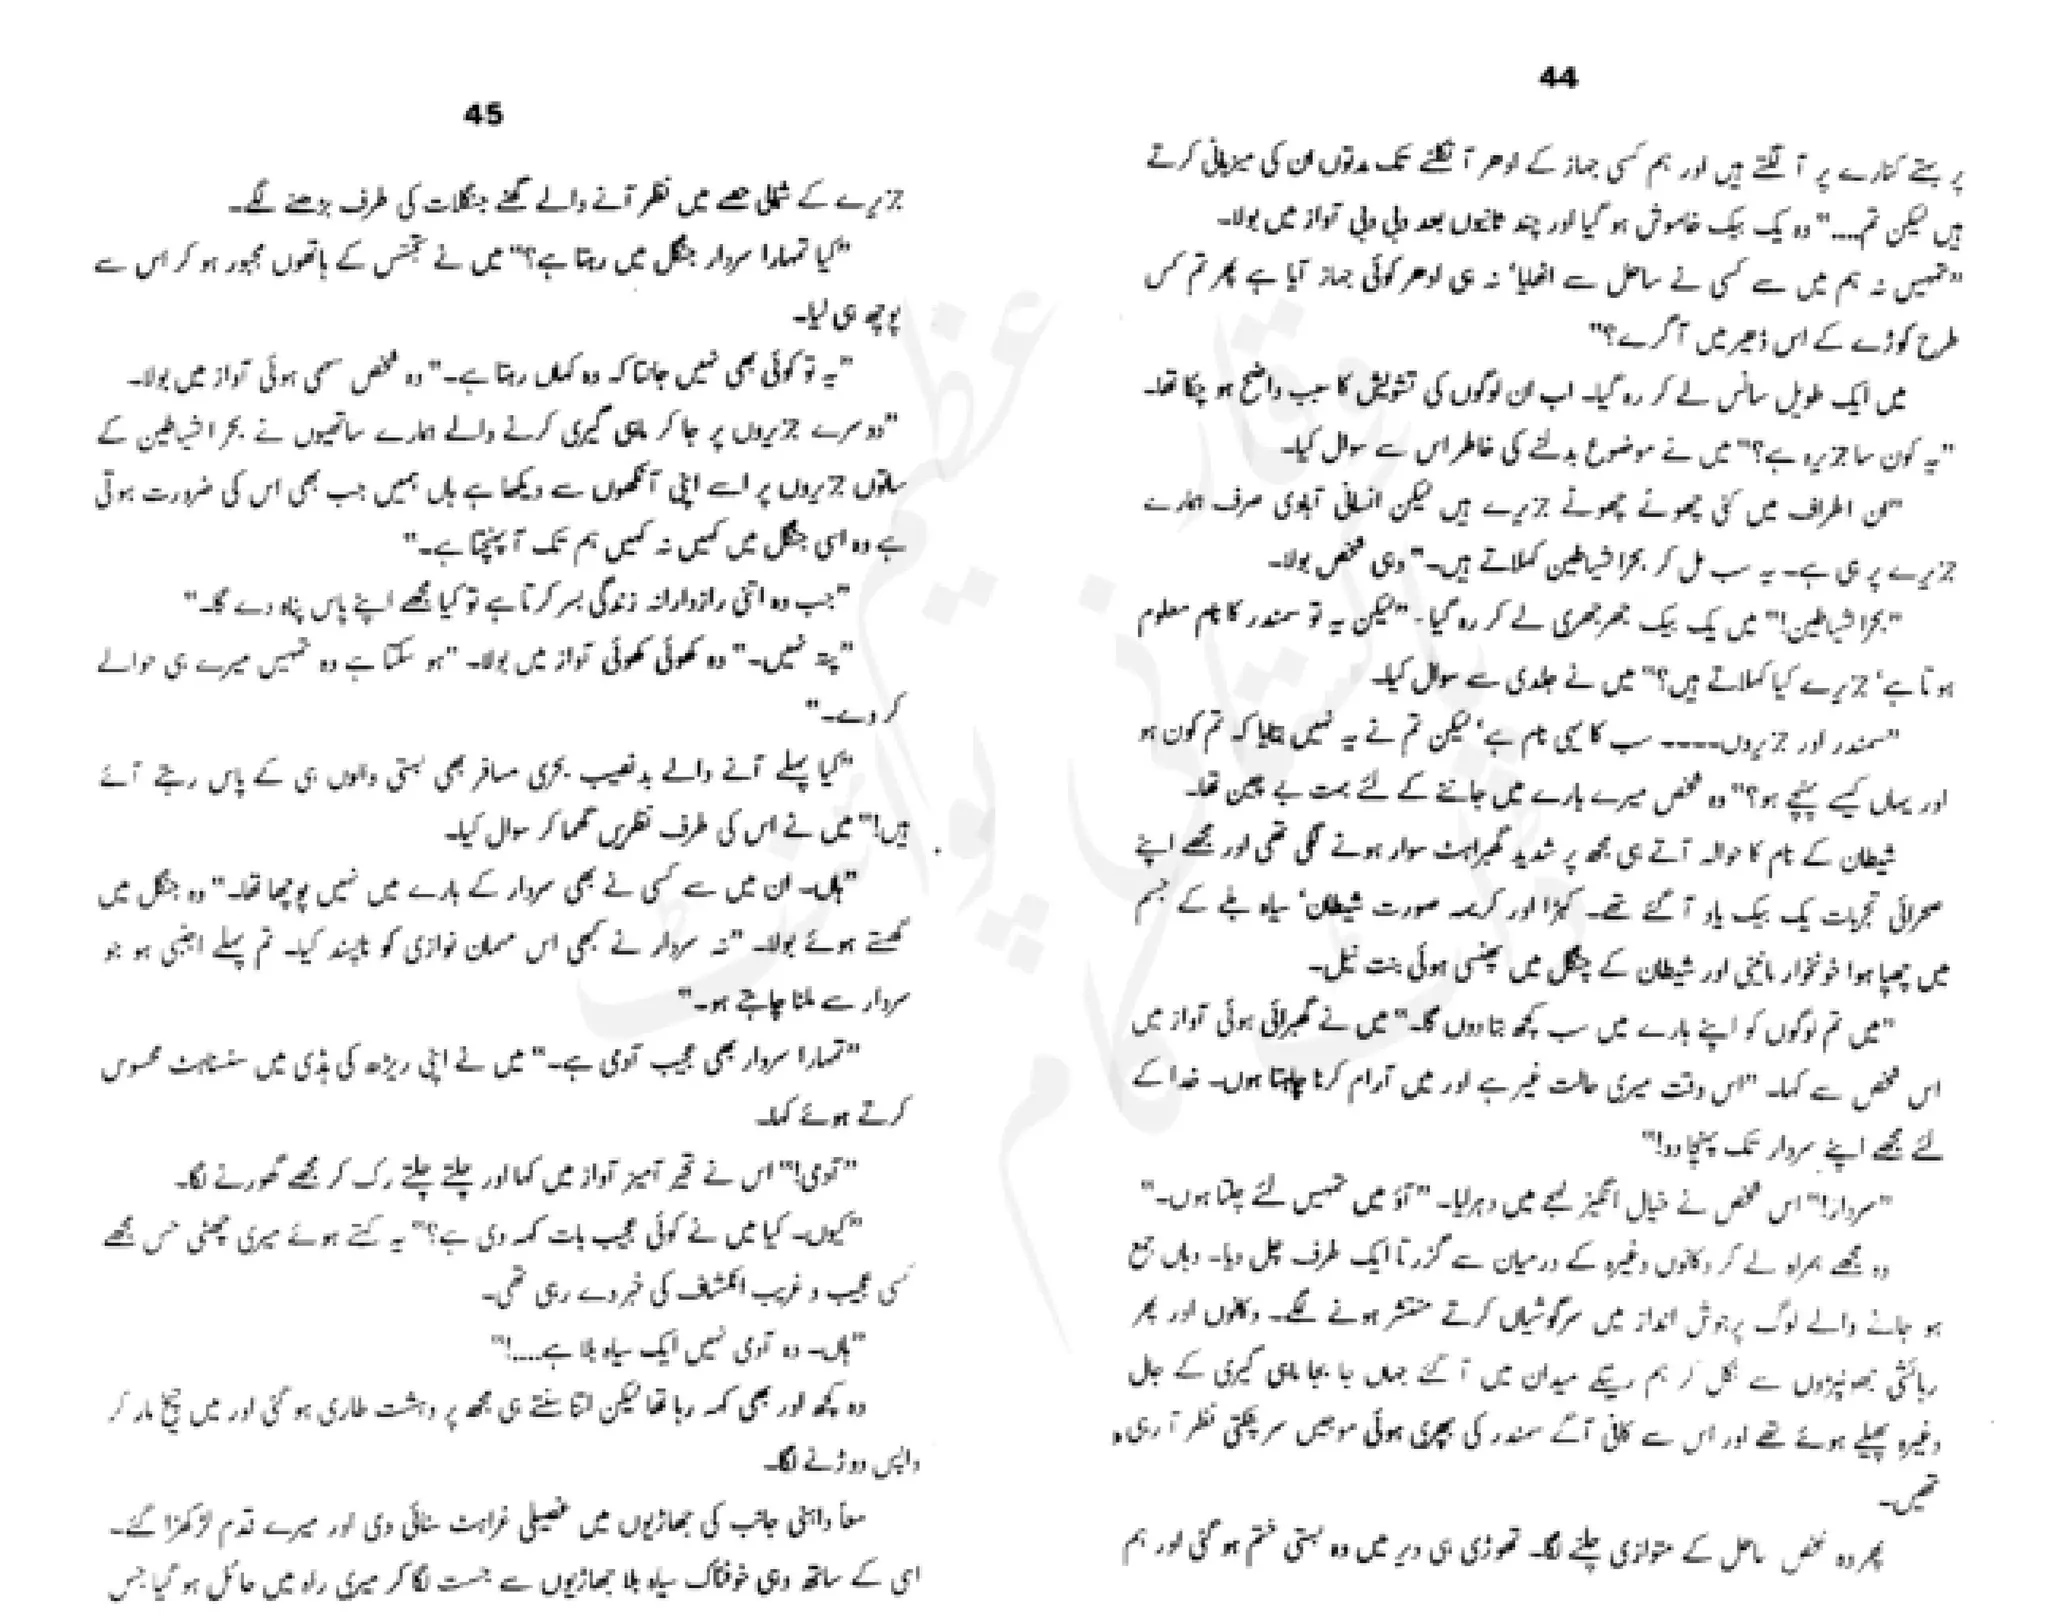 44
پر بہتے کنارے پر آ لگتے ہیں اور ہم کسی جہاز کے ادھر آ نکلنے تک مدتوں ان کی میزبانی کرتے
ہیں لیکن تم...." وہ یک بیک خاموش ہو گیا اور چند ثانیوں بعد دبی دبی آواز میں بولا۔
"تمہیں نہ ہم میں سے کسی نے ساحل سے اٹھایا' نہ ہی ادھر کوئی جہاز آیا ہے پھر تم کس
طرح کوڑے کے اس ڈھیر میں آگرے؟"
میں ایک طویل سانس لے کر رہ گیا۔ اب ان لوگوں کی تشویش کا سبب واضح ہو چکا تھا۔
"یہ کون سا جزیرہ ہے؟" میں نے موضوع بدلنے کی خاطر اس سے سوال کیا۔
"ان اطراف میں کئی چھوٹے چھوٹے جزیرے ہیں لیکن انسانی آبادی صرف ہمارے
جزیرے پر ہی ہے۔ یہ سب مل کر بحرالشیاطین کہلاتے ہیں۔" وہی شخص بولا۔
"بحرالشیاطین!" میں یک بیک جھرجھری لے کر رہ گیا۔ "لیکن یہ تو سمندر کا نام معلوم
ہوتا ہے' جزیرے کیا کہلاتے ہیں؟" میں نے جلدی سے سوال کیا۔
"سمندر اور جزیروں---- سب کا یہی نام ہے' لیکن تم نے یہ نہیں بتایا کہ تم کون ہو
اور یہاں کیسے پہنچے ہو؟" وہ شخص میرے بارے میں جاننے کے لئے بہت بے چین تھا۔
شیطان کے نام کا حوالہ آتے ہی مجھ پر شدید گھبراہٹ سوار ہونے لگی تھی اور مجھے اپنے
صحرائی تجربات یک بیک یاد آ گئے تھے۔ کبڑا اور کریہہ صورت شیطان' سیاہ بلے کے جسم
میں چھپا ہوا خونخوار مانیتی اور شیطان کے چنگل میں پھنسی ہوئی بنت نیل۔
"میں تم لوگوں کو اپنے بارے میں سب کچھ بتا دوں گا۔" میں نے گھبرائی ہوئی آواز میں
اس شخص سے کہا۔ "اس وقت میری حالت غیر ہے اور میں آرام کرنا چاہتا ہوں۔ خدا کے
لئے مجھے اپنے سردار تک پہنچا دو!"
"سردار!" اس شخص نے خیال انگیز لہجے میں دہرایا۔ "آؤ میں تمہیں لئے چلتا ہوں۔"
وہ مجھے ہمراہ لے کر دکانوں وغیرہ کے درمیان سے گزرتا ایک طرف چل دیا۔ وہاں جمع
ہو جانے والے لوگ پرجوش انداز میں سرگوشیاں کرتے منتشر ہونے لگے۔ دکانوں اور پھر
رہائشی جھونپڑوں سے نکل کر ہم ریتلے میدان میں آ گئے جہاں جا بجا ماہی گیری کے جال
وغیرہ پھیلے ہوئے تھے اور اس سے کافی آگے سمندر کی بپھری ہوئی موجیں سر پٹکتی نظر آ رہی
تھیں۔
پھر وہ شخص ساحل کے متوازی چلنے لگا۔ تھوڑی ہی دیر میں وہ بستی ختم ہو گئی اور ہم
45
جزیرے کے شمالی حصے میں نظر آنے والے گھنے جنگلات کی طرف بڑھنے لگے۔
"کیا تمہارا سردار جنگل میں رہتا ہے؟" میں نے تجسس کے ہاتھوں مجبور ہو کر اس سے
پوچھ ہی لیا۔
"یہ تو کوئی بھی نہیں جانتا کہ وہ کہاں رہتا ہے۔" وہ شخص سہمی ہوئی آواز میں بولا۔
"دوسرے جزیروں پر جا کر ماہی گیری کرنے والے ہمارے ساتھیوں نے بحرالشیاطین کے
ساتوں جزیروں پر اسے اپنی آنکھوں سے دیکھا ہے ہاں ہمیں جب بھی اس کی ضرورت ہوتی
ہے وہ اسی جنگل میں کہیں نہ کہیں ہم تک آ پہنچتا ہے۔"
"جب وہ اتنی رازدارانہ زندگی بسر کرتا ہے تو کیا مجھے اپنے پاس پناہ دے گا۔"
"پتہ نہیں۔" وہ کھوئی کھوئی آواز میں بولا۔ "ہو سکتا ہے وہ تمہیں میرے ہی حوالے
کر دے۔"
"کیا پہلے آنے والے بدنصیب بحری مسافر بھی بستی والوں ہی کے پاس رہتے آئے
ہیں!" میں نے اس کی طرف نظریں گھما کر سوال کیا۔
"ہاں۔ ان میں سے کسی نے بھی سردار کے بارے میں نہیں پوچھا تھا۔" وہ جنگل میں
گھستے ہوئے بولا۔ "نہ سردار نے کبھی اس مہمان نوازی کو ناپسند کیا۔ تم پہلے اجنبی ہو جو
سردار سے ملنا چاہتے ہو۔"
"تمہارا سردار بھی عجیب آدمی ہے۔" میں نے اپنی ریڑھ کی ہڈی میں سنسناہٹ محسوس
کرتے ہوئے کہا۔
"آدمی!" اس نے تحیر آمیز آواز میں کہا اور چلتے چلتے رک کر مجھے گھورنے لگا۔
"کیوں۔ کیا میں نے کوئی عجیب بات کہہ دی ہے؟" یہ کہتے ہوئے میری چھٹی حس مجھے
کسی عجیب و غریب انکشاف کی خبر دے رہی تھی۔
"ہاں۔ وہ آدمی نہیں ایک سیاہ بلا ہے....!"
وہ کچھ اور بھی کہہ رہا تھا لیکن اتنا سنتے ہی مجھ پر دہشت طاری ہو گئی اور میں چیخ مار کر
واپس دوڑنے لگا۔
معاً داہنی جانب کی جھاڑیوں میں غصیلی غراہٹ سنائی دی اور میرے قدم لڑکھڑا گئے۔
اسی کے ساتھ وہی خوفناک سیاہ بلا جھاڑیوں سے جست لگا کر میری راہ میں حائل ہو گیا جس
وقار عظیم
پاکستانی پوائنٹ
ڈاٹ کام